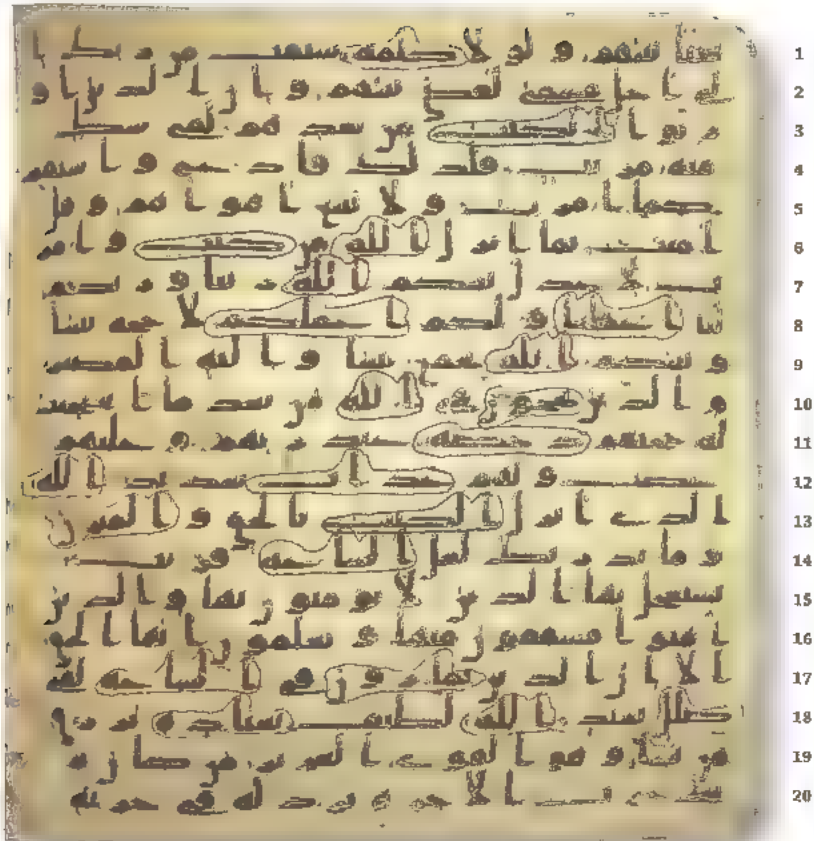 بغيا بينهم و لو لا كلمة سبقت من ربك ا
لى اجل مسمى لقضى بينهم و ان الذين او
رثوا الكتب من بعدهم لفى شك
منه مريب فلذلك فادع و استقم
كما امرت و لا تتبع اهواهم و قل
امنت بما انزل الله من كتب و امر
ت لاعدل بينكم الله ربنا و ربكم
لنا اعملنا و لكم اعملكم لا حجة بيننا
و بينكم الله يجمع بيننا و اليه المصير
و الذين يحجون فى الله من بعد ما استجيب
له حجتهم دحضة عند ربهم و عليهم
غضب و لهم عذاب شديد الله
الذى انزل الكتب بالحق و الميزن
و ما يدريك لعل الساعة قريب
يستعجل بها الذين لا يومنون بها و الذين
امنوا مشفقون منها و يعلمون انها الحق
الا ان الذين يمارون فى الساعة لفى
ضلل بعيد الله لطيف بعباده يرزق
من يشا و هو القوى العزيز من كان ير
يد حرث الاخرة نزد له فى حرثه
1
2
3
4
5
6
7
8
9
10
11
12
13
14
15
16
17
18
19
20